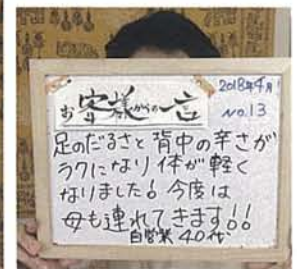 お客様からの一言
2018年4月
NO.13
足のだるさと背中の辛さが
ラクになり体が軽く
なりました！今度は
母も連れてきます！！
自営業 40代